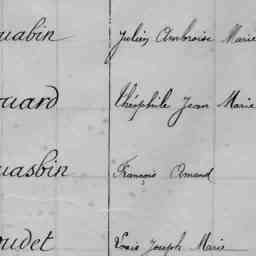 uabin Julien Ambroise Marie
uard Théophile Jean Marie
uasbin François Amand
oudet Louis Joseph Marie